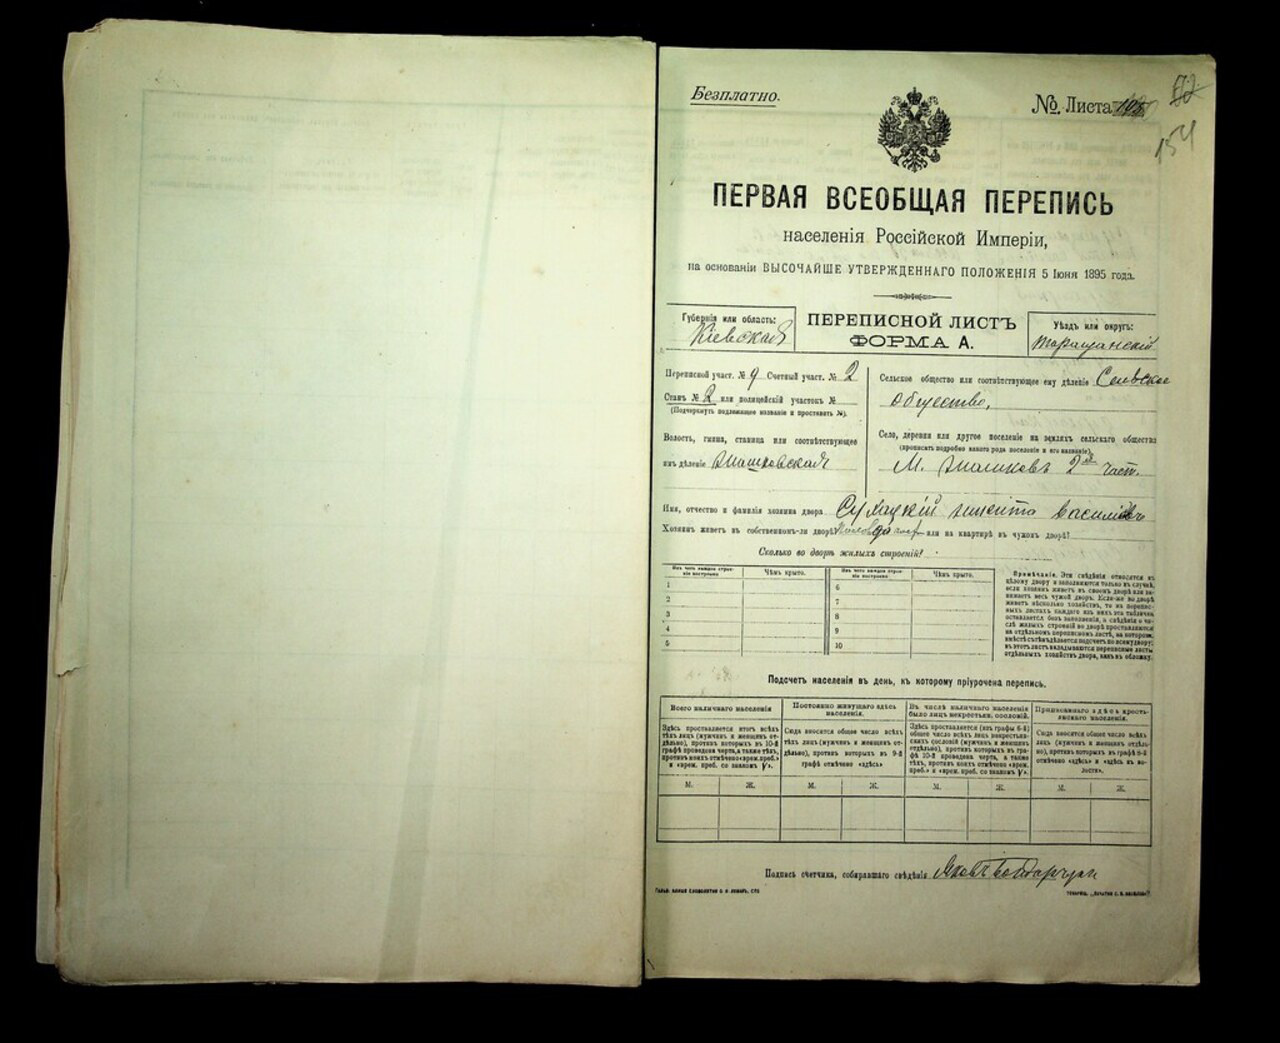 Безплатно.
№ Листа
154
ПЕРВАЯ ВСЕОБЩАЯ ПЕРЕПИСЬ
населенія Россійской Имперіи,
на основаніи ВЫСОЧАЙШЕ УТВЕРЖДЕННАГО ПОЛОЖЕНІЯ 5 Іюня 1895 года.
Губернія или область:
Кіевская
ПЕРЕПИСНОЙ ЛИСТЪ
ФОРМА А.
Уѣздъ или округъ:
Таращанскій
Переписной участ. № 9 Счетный участ. № 2
Станъ № 2 или полицейскій участокъ №
(Подчеркнуть подлежащее названіе и проставить №).
Волость, гмина, станица или соотвѣтствующее
имъ дѣленіе
Сельское общество или соотвѣтствующее ему дѣленіе Сельское
Общество,
Село, деревня или другое поселеніе на земляхъ сельскаго общества
(прописать подробно какого рода поселеніе и его названіе).
М. 2й част.
Имя, отчество и фамилія хозяина двора
Хозяинъ живетъ въ собственномъ-ли дворѣ? или на квартирѣ въ чужомъ дворѣ?
Сколько во дворѣ жилыхъ строеній?
Изъ чего каждое строеніе построено
Чѣмъ крыто.
Изъ чего каждое строеніе построено
Чѣмъ крыто.
1 6
2 7
3 8
4 9
5 10
Примѣчаніе. Эти свѣдѣнія относятся къ
цѣлому двору и заполняются только въ случаѣ,
если хозяинъ живетъ въ своемъ дворѣ или занимаетъ
весь чужой дворъ. Если-же во дворѣ
живетъ нѣсколько хозяйствъ, то на переписныхъ
листахъ каждаго изъ нихъ эта табличка
оставляется безъ заполненія, а свѣдѣнія о числѣ
жилыхъ строеній во дворѣ проставляются
на отдѣльномъ переписномъ листѣ, на которомъ
вмѣстѣ съ тѣмъ дѣлается подсчетъ по всему двору;
въ этотъ листъ вкладываются переписные листы
отдѣльныхъ хозяйствъ двора, какъ въ обложку.
Подсчетъ населенія въ день, къ которому пріурочена перепись.
Всего наличнаго населенія
Здѣсь проставляется итогъ всѣхъ
тѣхъ лицъ (мужчинъ и женщинъ отдѣльно),
противъ которыхъ въ 10-й
графѣ проведена черта, а также тѣхъ,
противъ коихъ отмѣчено «врем. преб.»
и «врем. преб. со знакомъ V».
Постоянно живущаго здѣсь
населенія.
Сюда вносится общее число всѣхъ
тѣхъ лицъ (мужчинъ и женщинъ отдѣльно),
противъ которыхъ въ 9-й
графѣ отмѣчено «здѣсь»
Въ числѣ наличнаго населенія
было лицъ некрестьян. сословій.
Здѣсь проставляется (изъ графы 4-й)
общее число всѣхъ лицъ некрестьянскихъ
сословій (мужчинъ и женщинъ
отдѣльно), противъ которыхъ въ графѣ
10-й проведена черта, а также
тѣхъ, противъ коихъ отмѣчено «врем.
преб.» и «врем. преб. со знакомъ V».
Приписаннаго здѣсь крестьянскаго
населенія.
Сюда вносится общее число всѣхъ
лицъ (мужчинъ и женщинъ отдѣльно),
противъ которыхъ въ графѣ 8-й
отмѣчено «здѣсь» и «здѣсь въ волости».
М. Ж. М. Ж. М. Ж. М. Ж.
Подпись счетчика, собиравшаго свѣдѣнія Яковъ Бондарчукъ